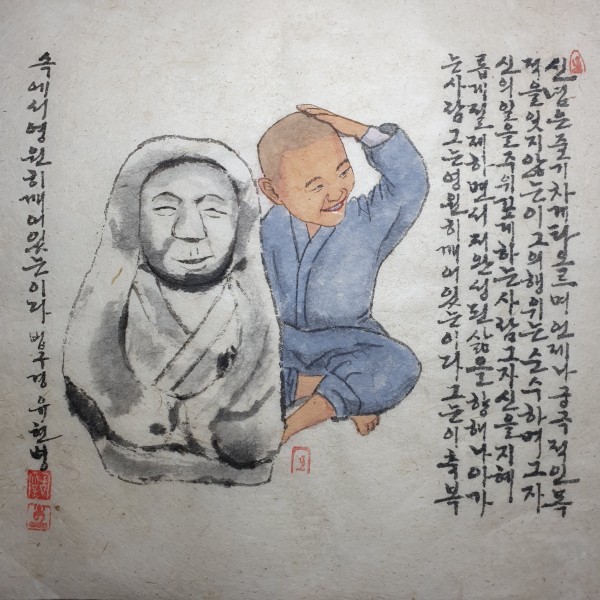 신념은 줄기차게 타오르며 언제나 궁극적인 목
적을 잊지 않는 이 그의 행위는 순수하며 그 자
신의 일을 주위깊게 하는 사람 그 자신을 지혜
롭게 절제하면서 저 완성된 삶을 향해 나아가
는 사람 그는 영원히 깨어 있는 이다 그는 이 축복
속에서 영원히 깨어 있는 이다 법구경 유현병